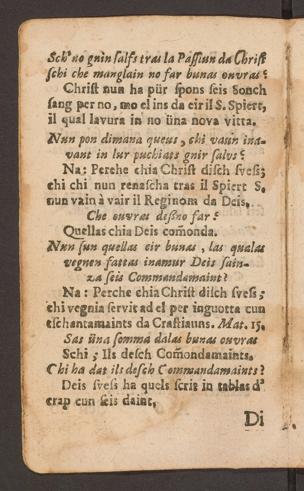 Sch' no gnin salfs tras la Passiun da Christ
schi che manglain no far bunas ouvras?
Christ nun ha pür spons seis Sonch
sang per no, mo el ins da eir il S. Spiert,
il qual lavura in no üna nova vitta.
Nun pon dimana queus, chi vaun ina-
vant in lur puchiats gnir salvs?
Na: Perche chia Christ disch svess;
chi chi nun renascha tras il Spiert S.
nun vain à vair il Reginom da Deis.
Che ouvras desno far?
Quellas chia Deis com̃onda.
Nun sun quellas eir bunas, las qualas
vegnen fattas inamur Deis sain-
za seis Commandamaint?
Na: Perche chia Christ disch svess;
chi vegnia servit ad el per inguotta cun
tschantamaints da Crastiauns. Mat. 15.
Sas üna somma dalas bunas ouvras
Schi; Ils desch Com̃ondamaints.
Chi ha dat ils desch Commandamaints?
Deis svess ha quels scrit in tablas d'
crap cun seis daint.
Di